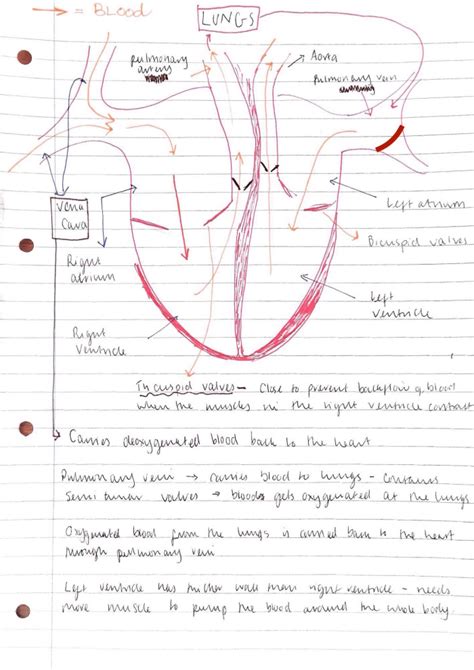 → = Blood
LUNGS
pulmonary
artery
Aorta
pulmonary vein
Vena
Cava
Left atrium
Bicuspid valves
Right
atrium
Left
ventricle
Right
ventricle
Tricuspid valves - Close to prevent backflow of blood
when the muscles in the right ventricle contract
Carries deoxygenated blood back to the heart
Pulmonary vein → carries blood to lungs - contains
Semi lunar valves → blood gets oxygenated at the lungs
Oxygenated blood from the lungs is carried back to the heart
through pulmonary vein
Left ventricle has thicker walls than right ventricle - needs
more muscle to pump the blood around the whole body.